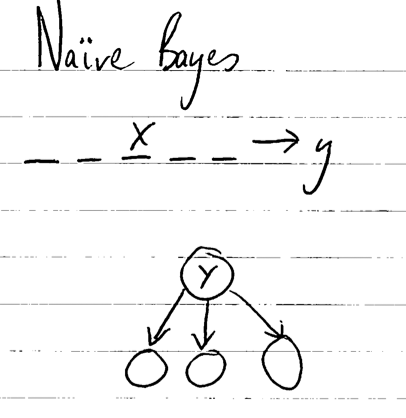 Naïve Bayes
_ _ X _ _ → y
Y